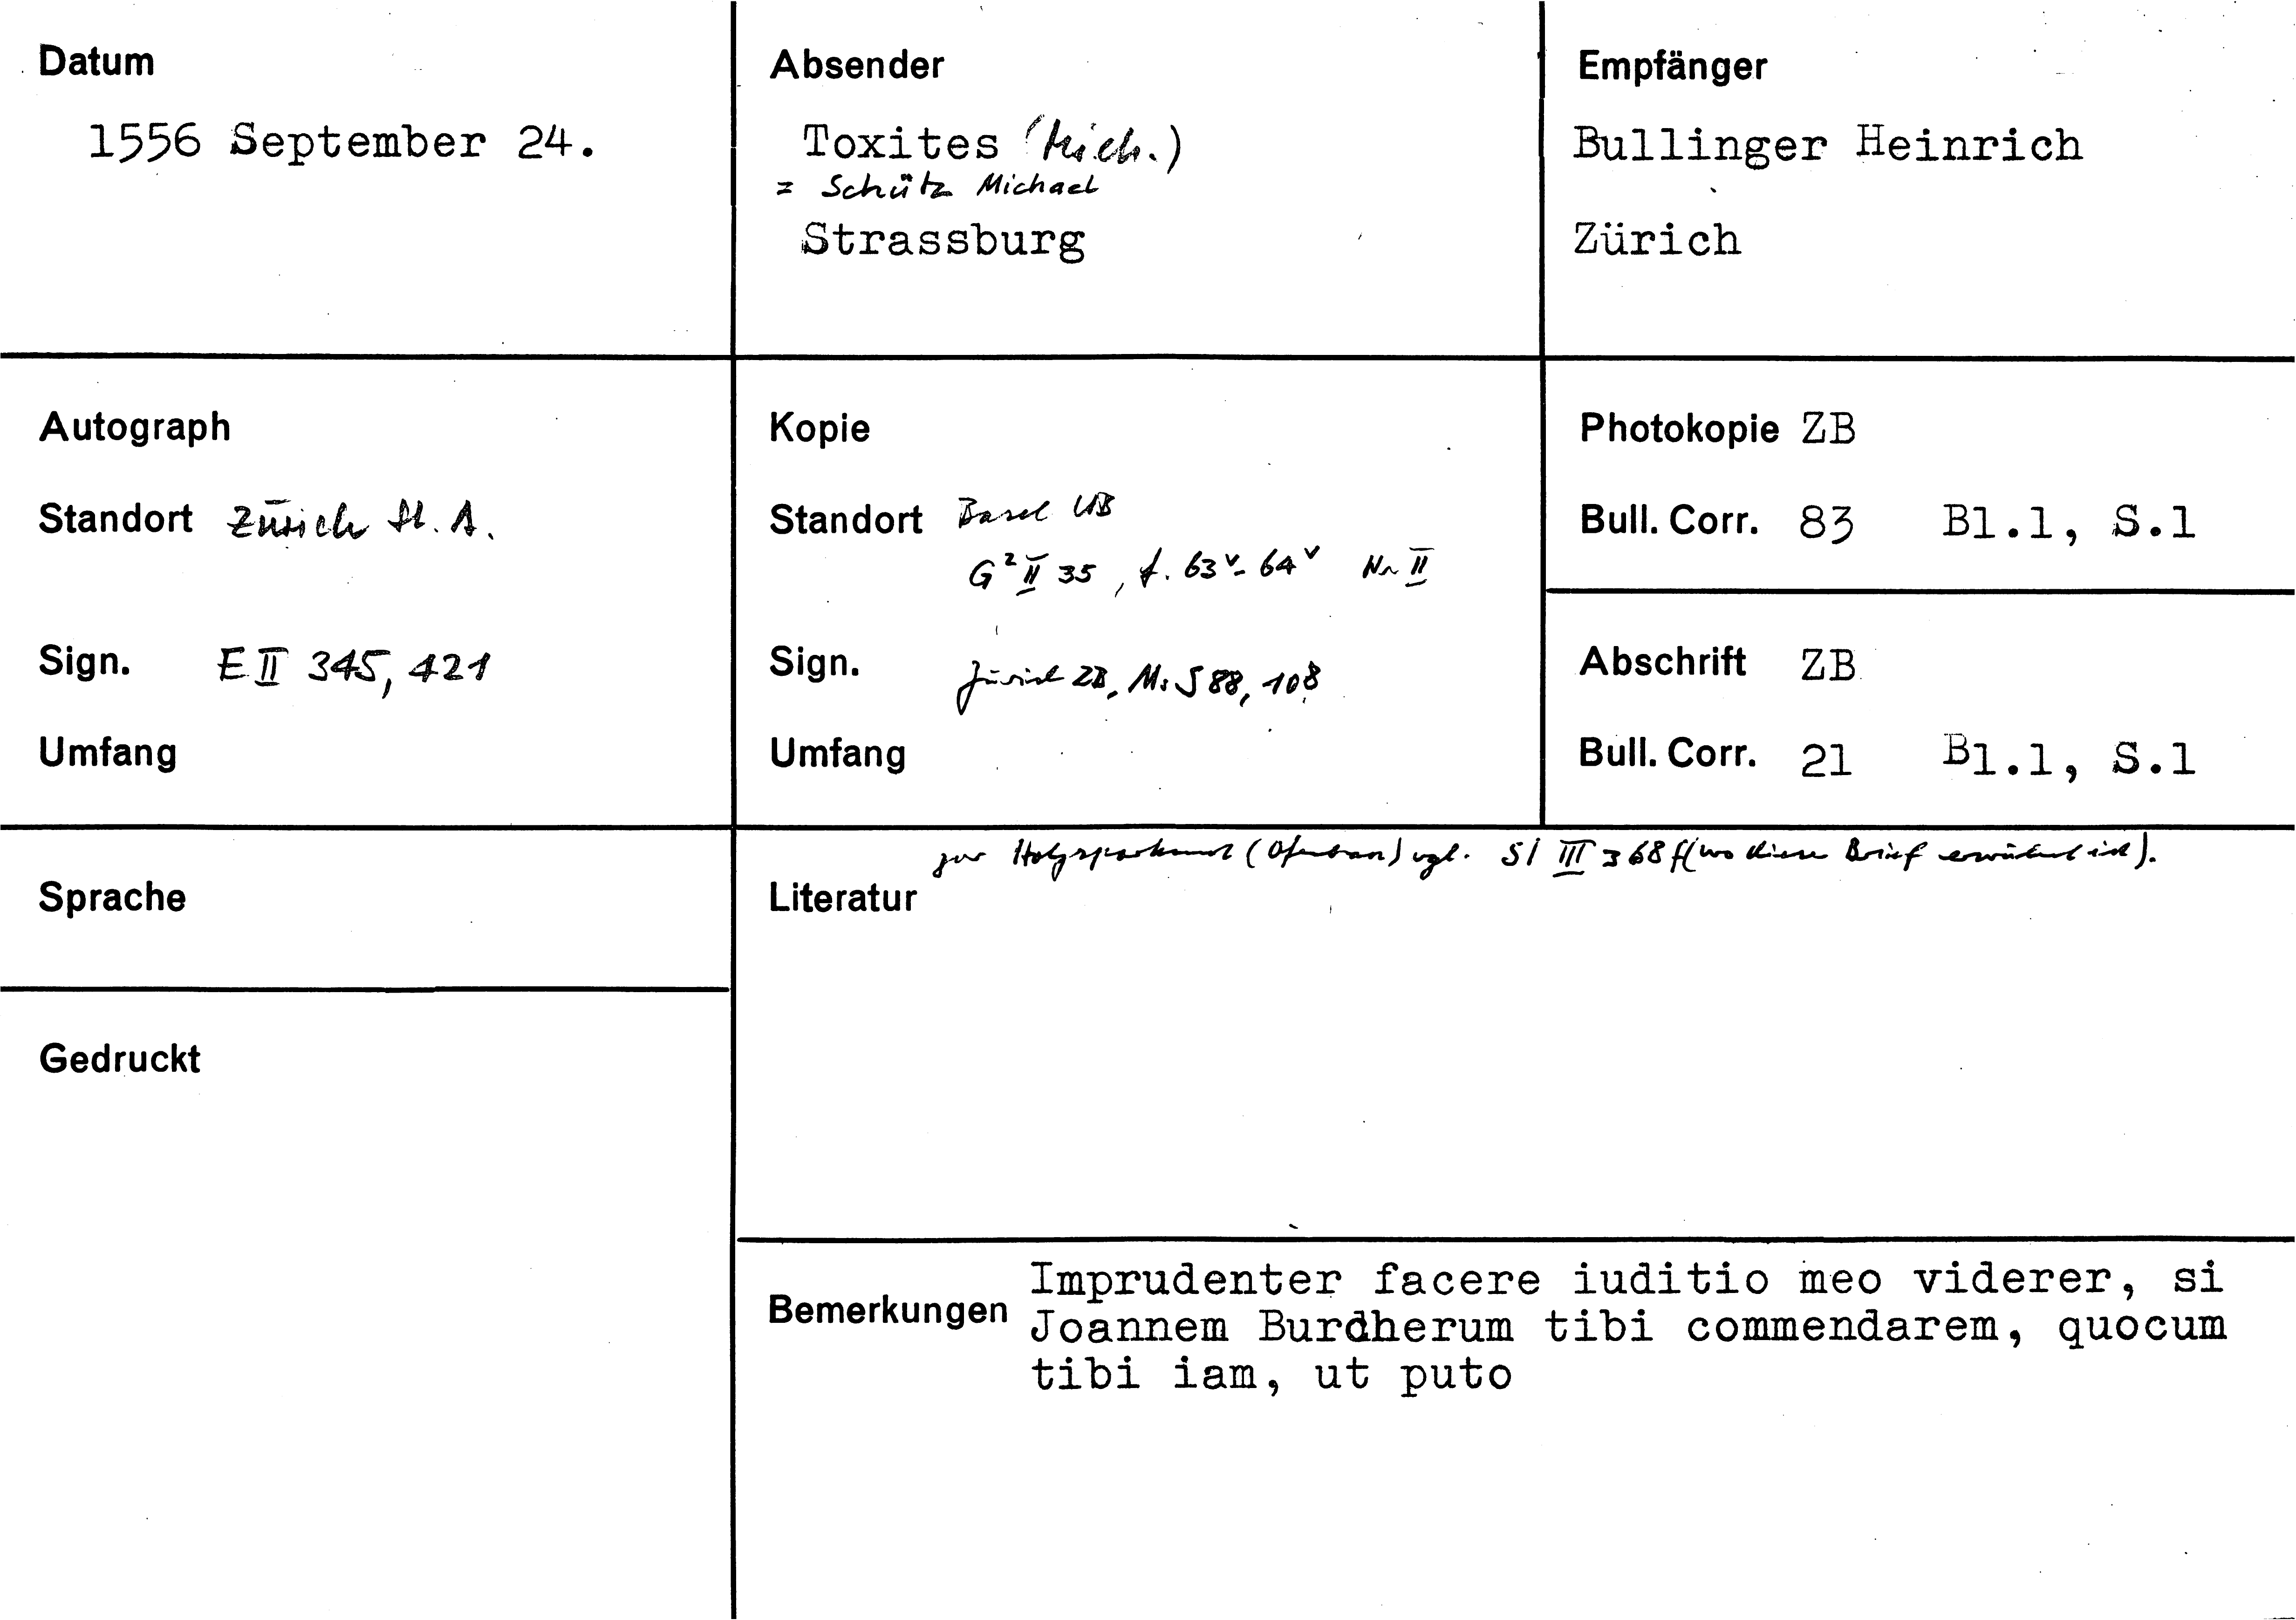 Datum
1556 September 24.
Absender
Toxites (Mich.)
= Schütz Michael
Strassburg
Empfänger
Bullinger Heinrich
Zürich
Autograph
Standort Zürich St. A.
Sign. E II 345, 421
Umfang
Kopie
Standort Basel UB
G² II 35, f. 63v-64v Nr II
Sign. Zürich ZB, Ms S 88, 108
Umfang
Photokopie ZB
Bull. Corr. 83 Bl.1, S.1
Abschrift ZB
Bull. Corr. 21 Bl.1, S.1
Sprache
Gedruckt
zur Holzsparkunst (Ofenbau) vgl. SI III 368 f (wo dieser Brief erwähnt ist).
Literatur
Bemerkungen
Imprudenter facere iuditio meo viderer, si
Joannem Burdherum tibi commendarem, quocum
tibi iam, ut puto